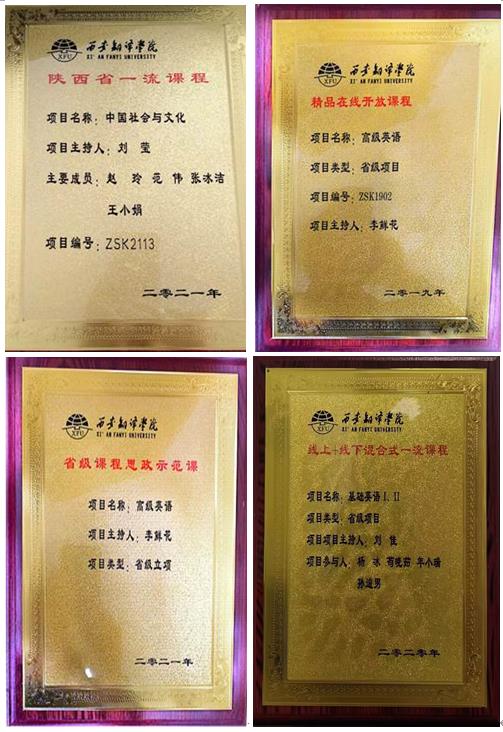 西安翻译学院
XI' AN FANYI UNIVERSITY
XFU
陕西省一流课程
项目名称：中国社会与文化
项目主持人：刘 莹
主要成员：赵 玲 范 伟 张冰洁
王小娟
项目编号：ZSK2113
二零二一年
西安翻译学院
XI' AN FANYI UNIVERSITY
XFU
精品在线开放课程
项目名称：高级英语
项目类型：省级项目
项目编号：ZSK1902
项目主持人：李鲜花
二零一九年
西安翻译学院
XI' AN FANYI UNIVERSITY
XFU
省级课程思政示范课
项目名称：高级英语
项目主持人：李鲜花
项目类型：省级立项
二零二一年
西安翻译学院
XI' AN FANYI UNIVERSITY
XFU
线上+线下混合式一流课程
项目名称：基础英语I、II
项目类型：省级项目
项目项目主持人：刘 佳
项目参与人：杨 冰 荀晓茹 年小瑞
男
二零二零年